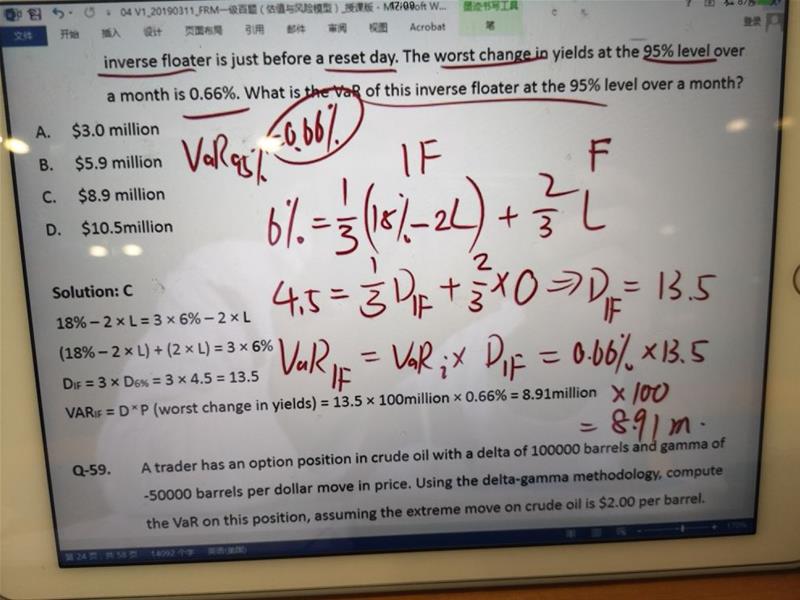 04 V1_20190311_FRM一级百题（估值与风险模型）_授课版 - M
墨迹书写工具
登录
文件 开始 插入 设计 页面布局 引用 邮件 审阅 视图 Acrobat 笔
inverse floater is just before a reset day. The worst change in yields at the 95% level over
a month is 0.66%. What is the VaR of this inverse floater at the 95% level over a month?
A. $3.0 million
B. $5.9 million
C. $8.9 million
D. $10.5million
VaR95% -0.66%
IF F
6% = 1/3 (18% - 2L) + 2/3 L
4.5 = 1/3 D_IF + 2/3 × 0 ⇒ D_IF = 13.5
VaR_IF = VaR_i × D_IF = 0.66% × 13.5
× 100
= 8.91 m.
Solution: C
18% – 2 × L = 3 × 6% – 2 × L
(18% – 2 × L) + (2 × L) = 3 × 6%
D_IF = 3 × D_6% = 3 × 4.5 = 13.5
VAR_IF = D × P (worst change in yields) = 13.5 × 100million × 0.66% = 8.91million
Q-59. A trader has an option position in crude oil with a delta of 100000 barrels and gamma of
-50000 barrels per dollar move in price. Using the delta-gamma methodology, compute
the VaR on this position, assuming the extreme move on crude oil is $2.00 per barrel.
第 24 页，共 58 页 14092 个字 英语(美国) 170%